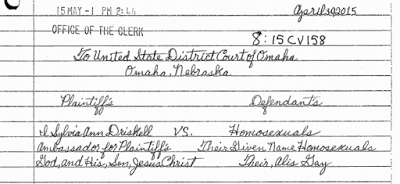 15 MAY -1 PM 2:44
April 30 2015
OFFICE OF THE CLERK
8:15CV158
To United State District Court of Omaha
Omaha, Nebraska
Plaintiff's Defendants
I Sylvia Ann Driskell VS. Homosexuals
Ambassador for Plaintiff's Their Given Name Homosexuals
God, and His, Son, Jesus Christ Their, Alis Gay